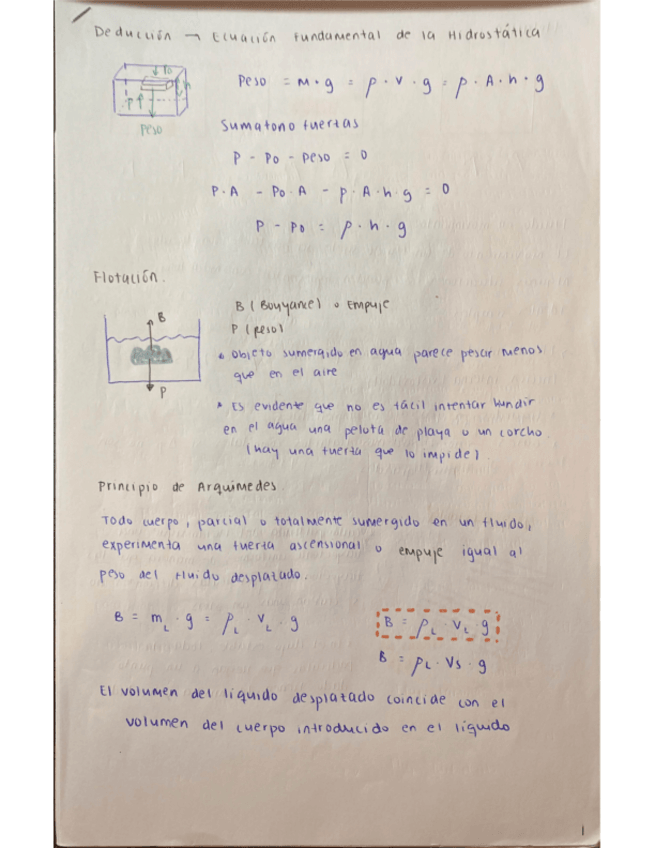 Deducción → Ecuación Fundamental de la Hidrostática
Po
h
P
Peso
Peso = m · g = ρ · V · g = ρ · A · h · g
Sumatorio fuerzas
P - Po - peso = 0
P · A - Po · A - ρ · A · h · g = 0
P - Po = ρ · h · g
Flotación.
B
P
B (Bouyance) o Empuje
P (peso)
• Objeto sumergido en agua parece pesar menos
que en el aire
* Es evidente que no es fácil intentar hundir
en el agua una pelota de playa o un corcho
(hay una fuerza que lo impide).
Principio de Arquímedes.
Todo cuerpo, parcial o totalmente sumergido en un fluido,
experimenta una fuerza ascensional o empuje igual al
peso del fluido desplazado.
B = m_L · g = ρ_L · V_L · g
B = ρ_L · V_L · g
B = ρ_L · Vs · g
El volumen del líquido desplazado coincide con el
volumen del cuerpo introducido en el líquido
1